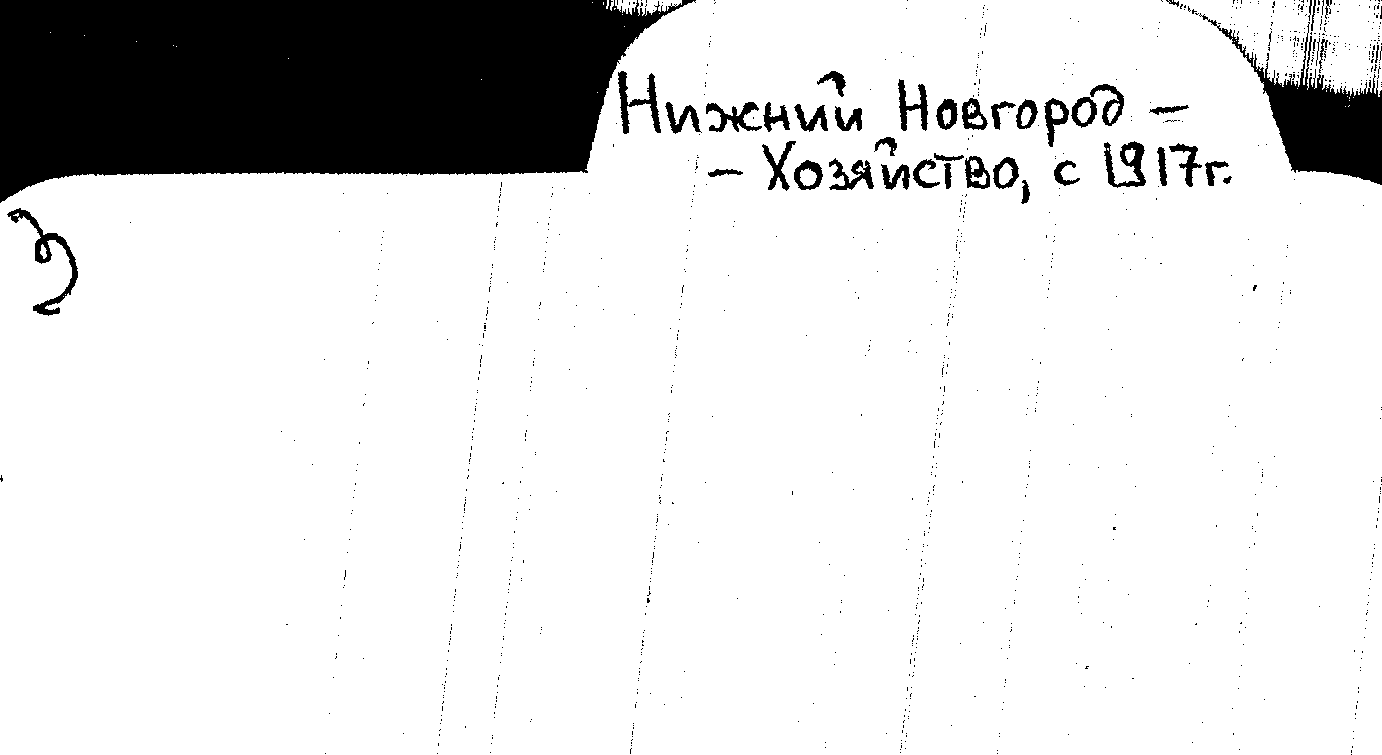 Нижний Новгород –
– Хозяйство, с 1917г.